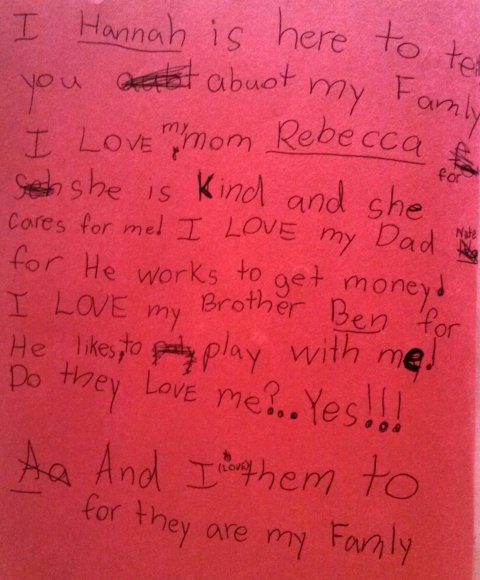 I Hannah is here to tell
you abuot my Famly
I LOVE my mom Rebecca
for
she is Kind and she
cares for me! I LOVE my Dad Nate
for He works to get money!
I LOVE my Brother Ben for
He likes to play with me!
Do they LOVE me?...Yes!!!
Aa And I (LOVE) them to
for they are my Famly